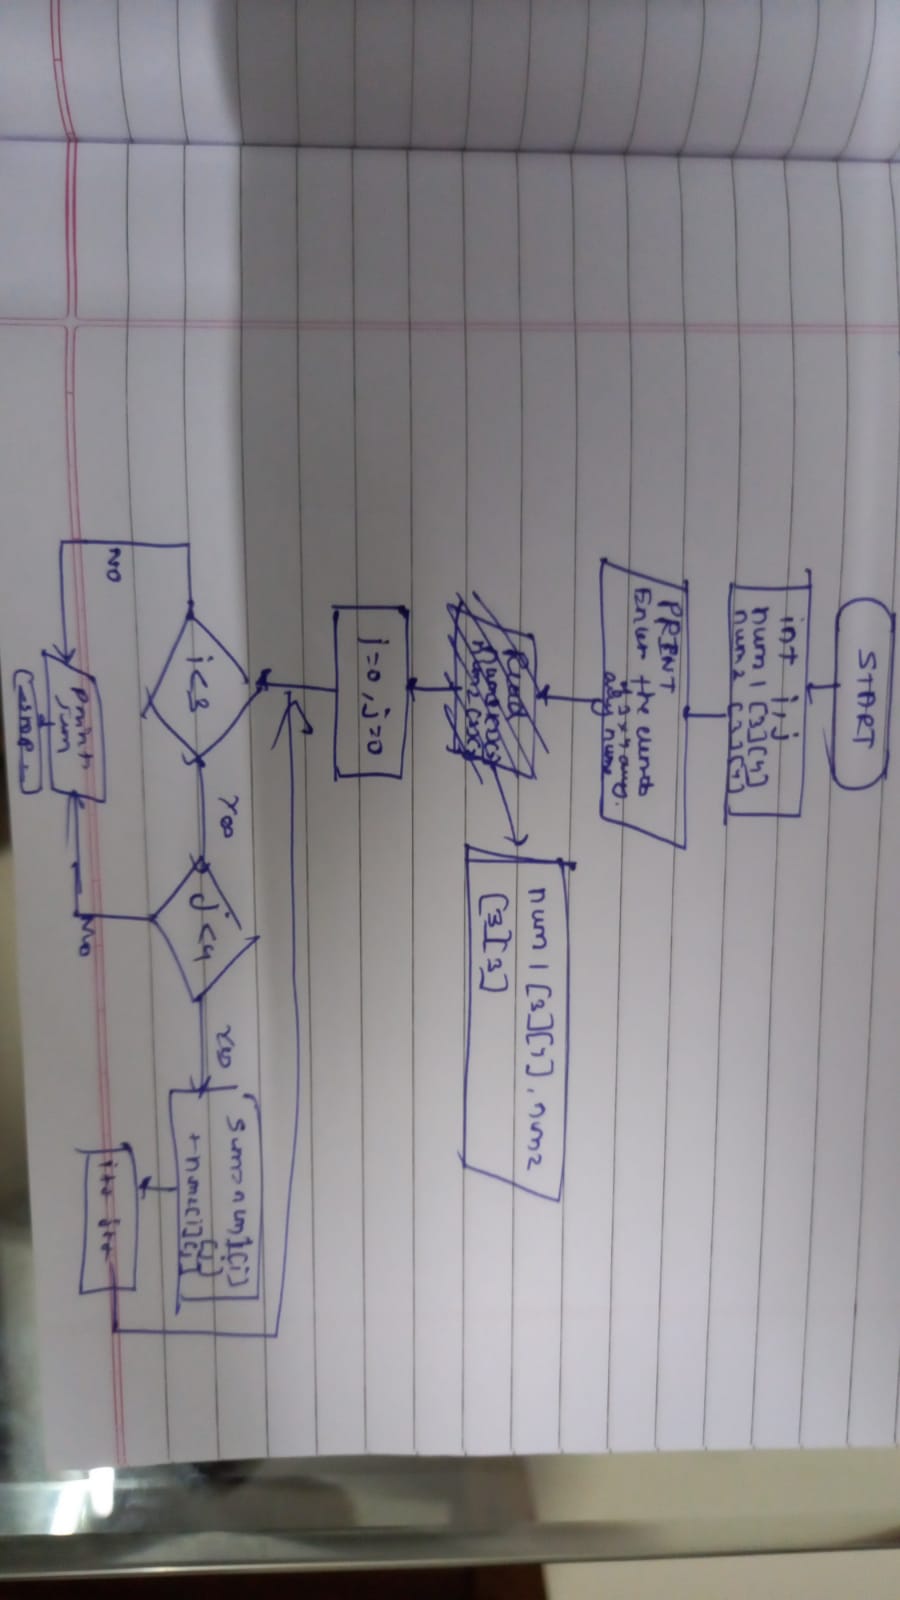 START
int i,j
num1[3][4]
num2[3][4]
PRINT
Enter the elements
of 3x4 array.
Read
num1[3][4], num2
[3][3]
i=0, j=0
i<3
Yes
j<4
Yes
sum=num1[i]
[j]
+num2[i][j]
i++ j++
NO
NO
Print
sum
STOP